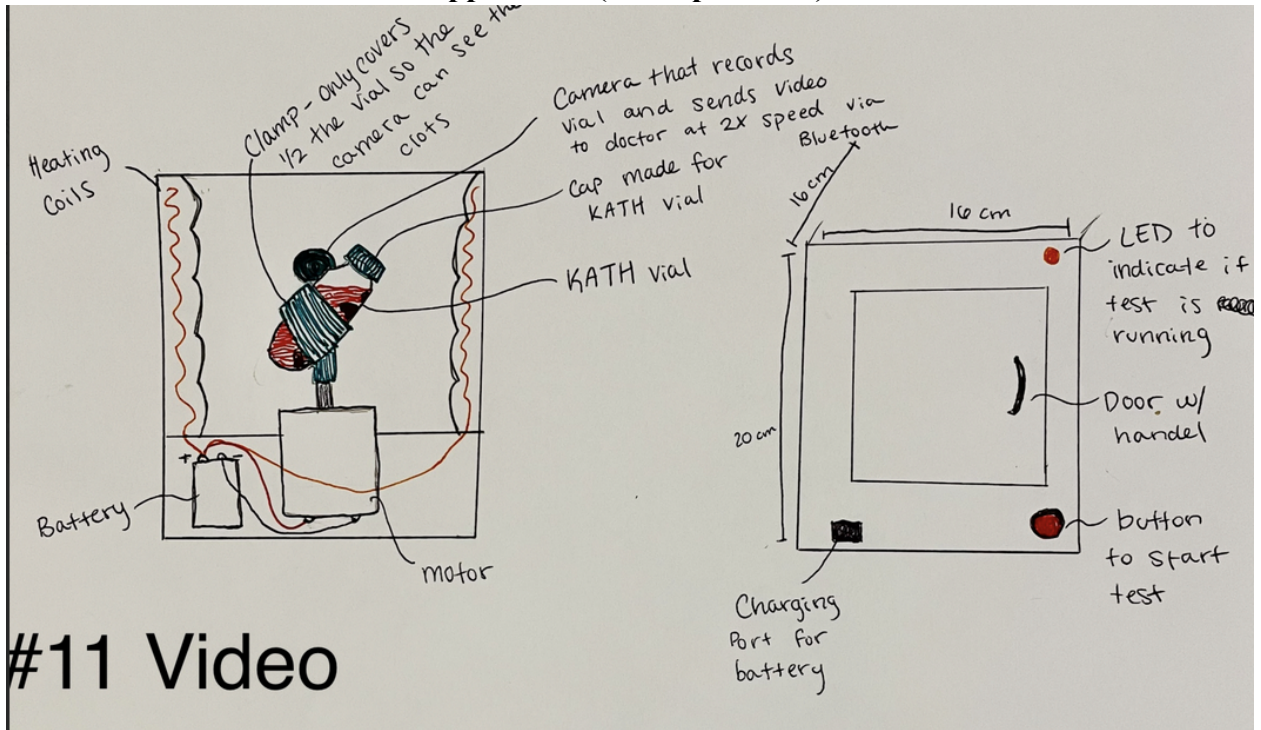 Clamp - only covers
1/2 the vial so the
camera can see the
clots
Heating
Coils
Camera that records
vial and sends video
to doctor at 2X speed via
Bluetooth
Cap made for
KATH vial
KATH vial
+
-
Battery
motor
16 cm
16 cm
20 cm
LED to
indicate if
test is
running
Door w/
handel
button
to start
test
Charging
Port for
battery
#11 Video